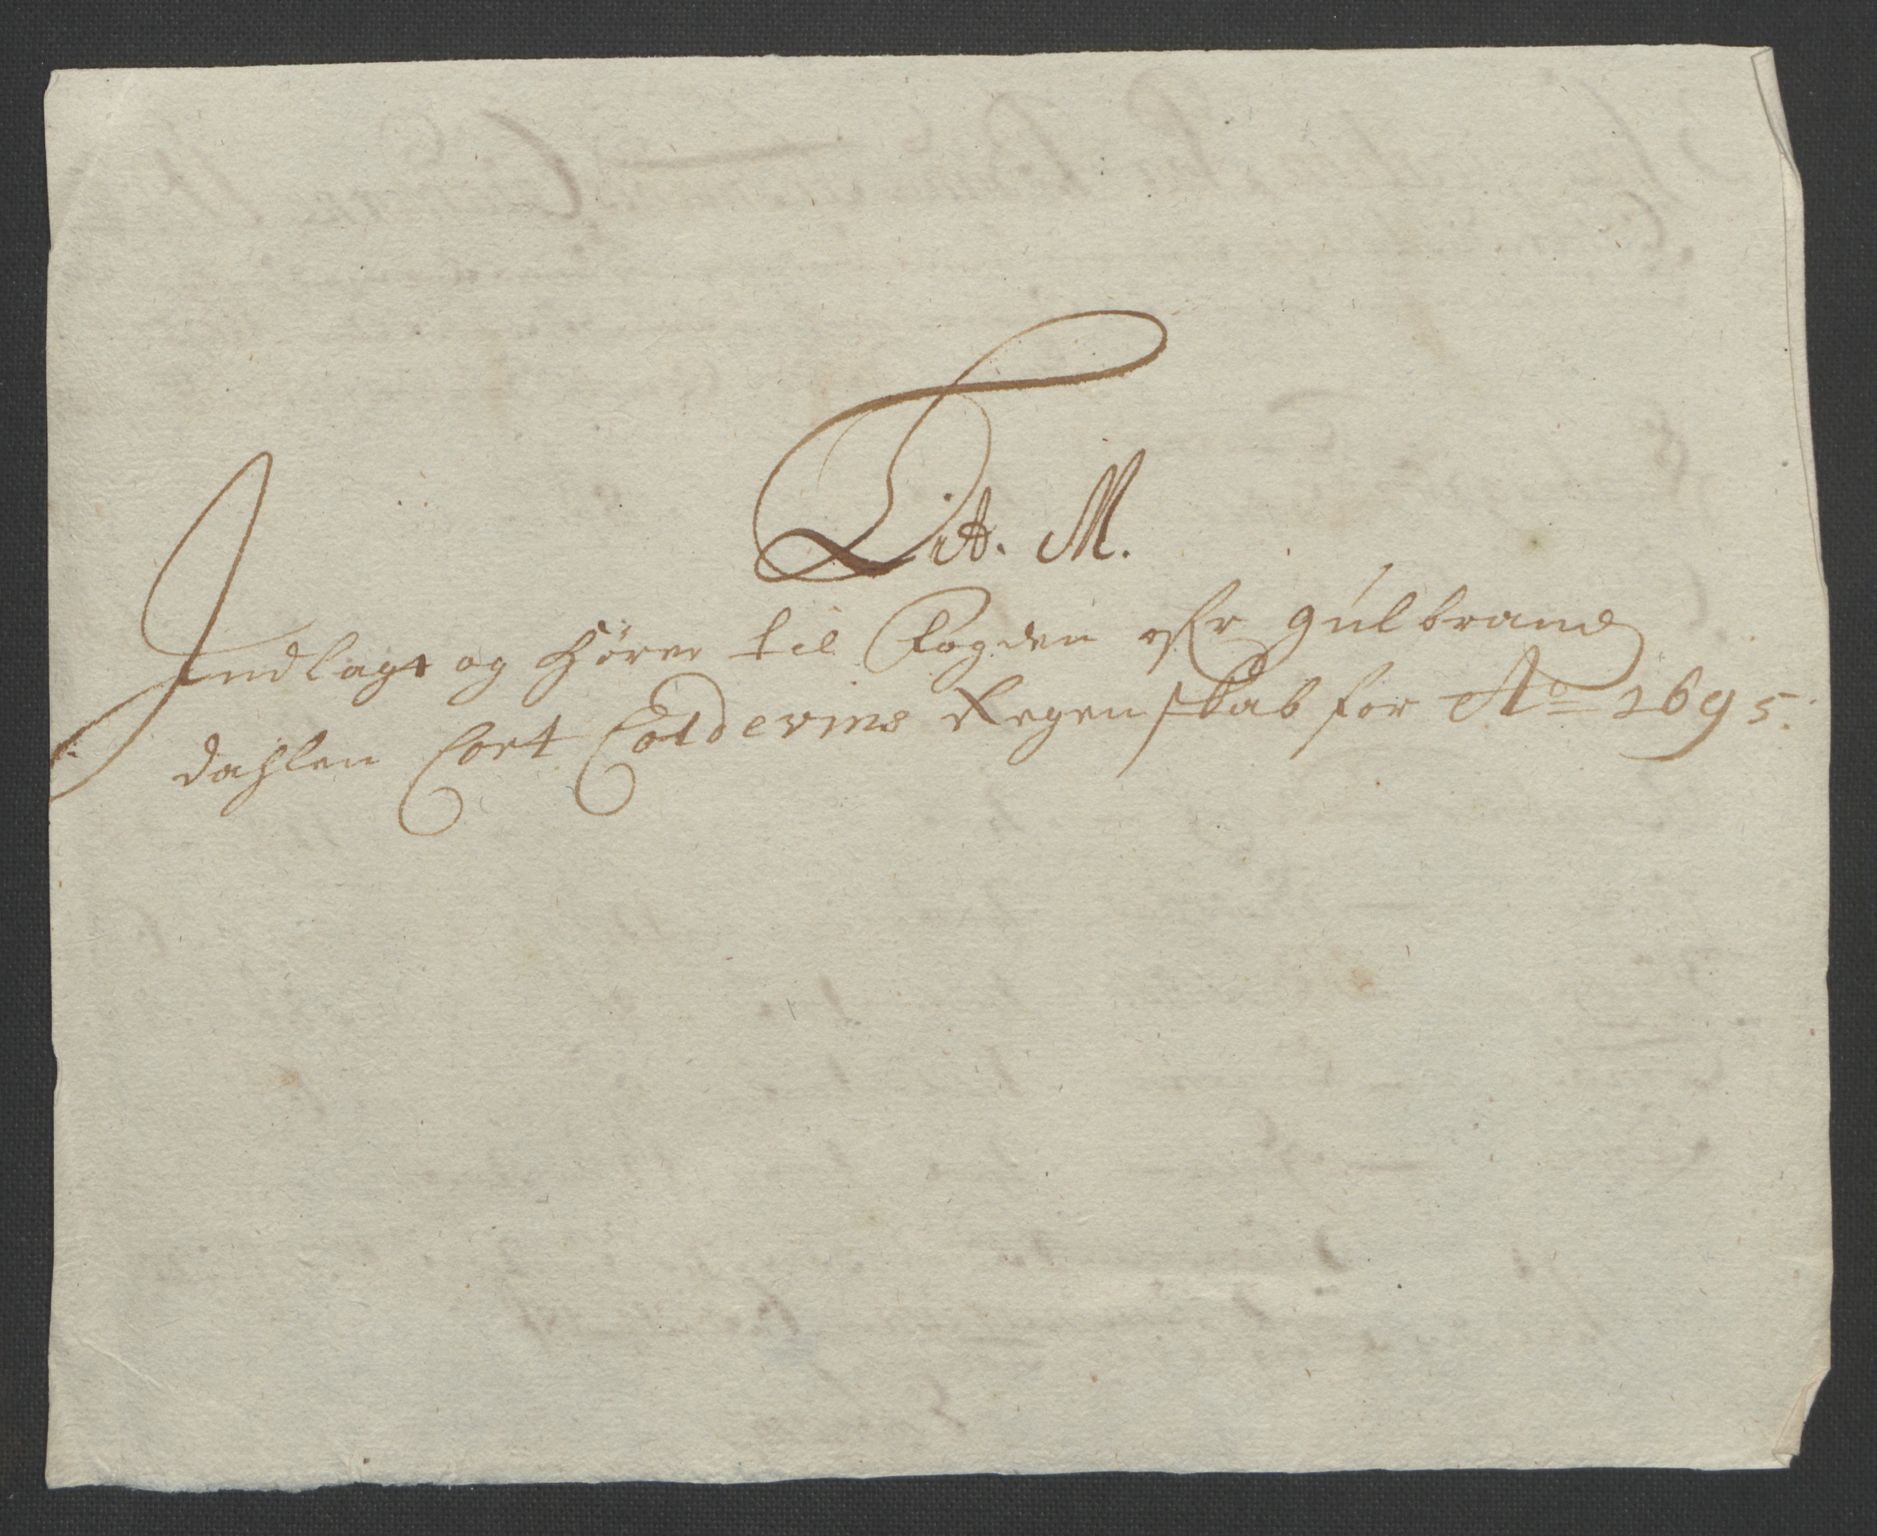 Lit. M.
Indlagt og hører til Fogden ofr Gulbrands
dahlen Cort Coldevins Regenskab for Ao 1695.